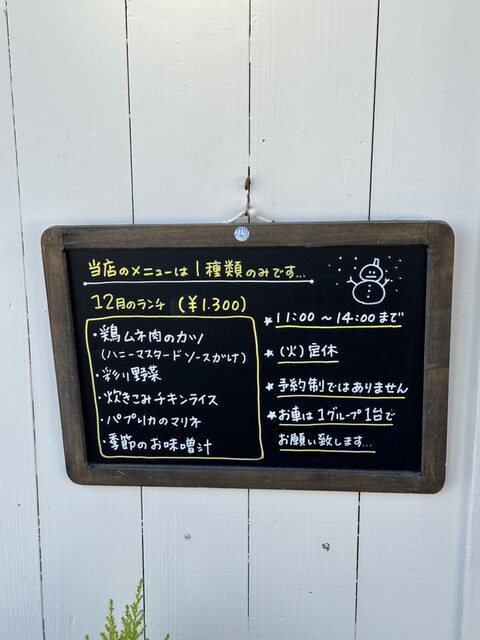 当店のメニューは1種類のみです...
12月のランチ (¥1.300)
・鶏ムネ肉のカツ
(ハニーマスタードソースがけ)
・彩り野菜
・炊きこみチキンライス
・パプリカのマリネ
・季節のお味噌汁
★11:00～14:00まで
★(火)定休
★予約制ではありません
★お車は1グループ1台で
お願い致します...